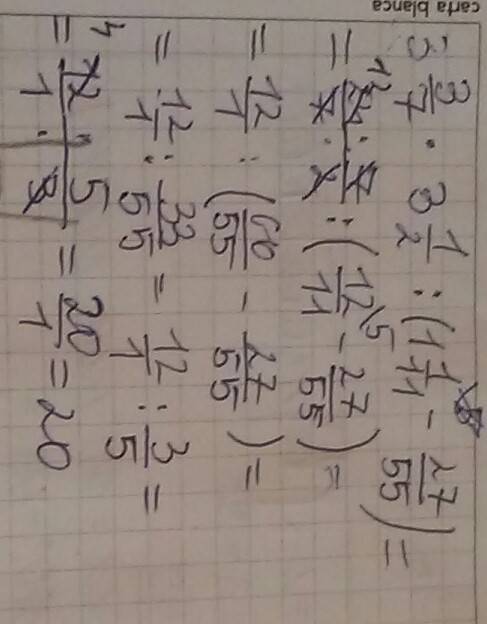 carta blanca
3 3/7 · 3 1/2 : (1 1/11 - 27/55) =
= 24/7 · 7/2 : (12/11 \5 - 27/55) =
= 12/1 : (60/55 - 27/55) =
= 12/1 : 33/55 = 12/1 : 3/5 =
= 12/1 · 5/3 = 20/1 = 20